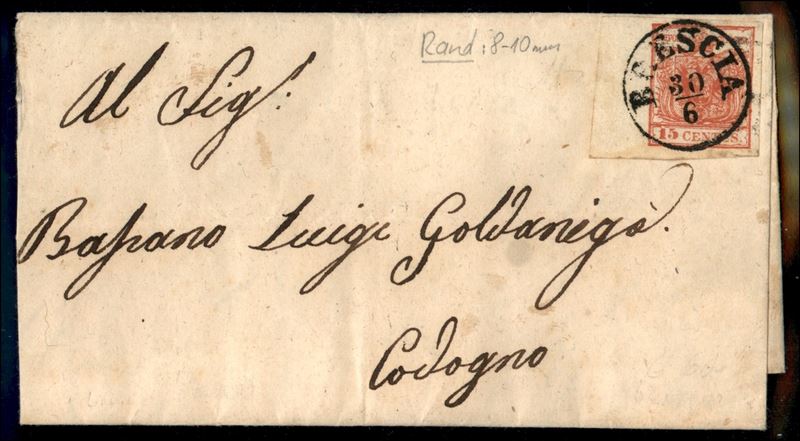 Rand: 8-10 mm
BRESCIA
30
6
15 CENTES.
Al Sigr:
Bassano Luigi Goldaniga.
Codogno